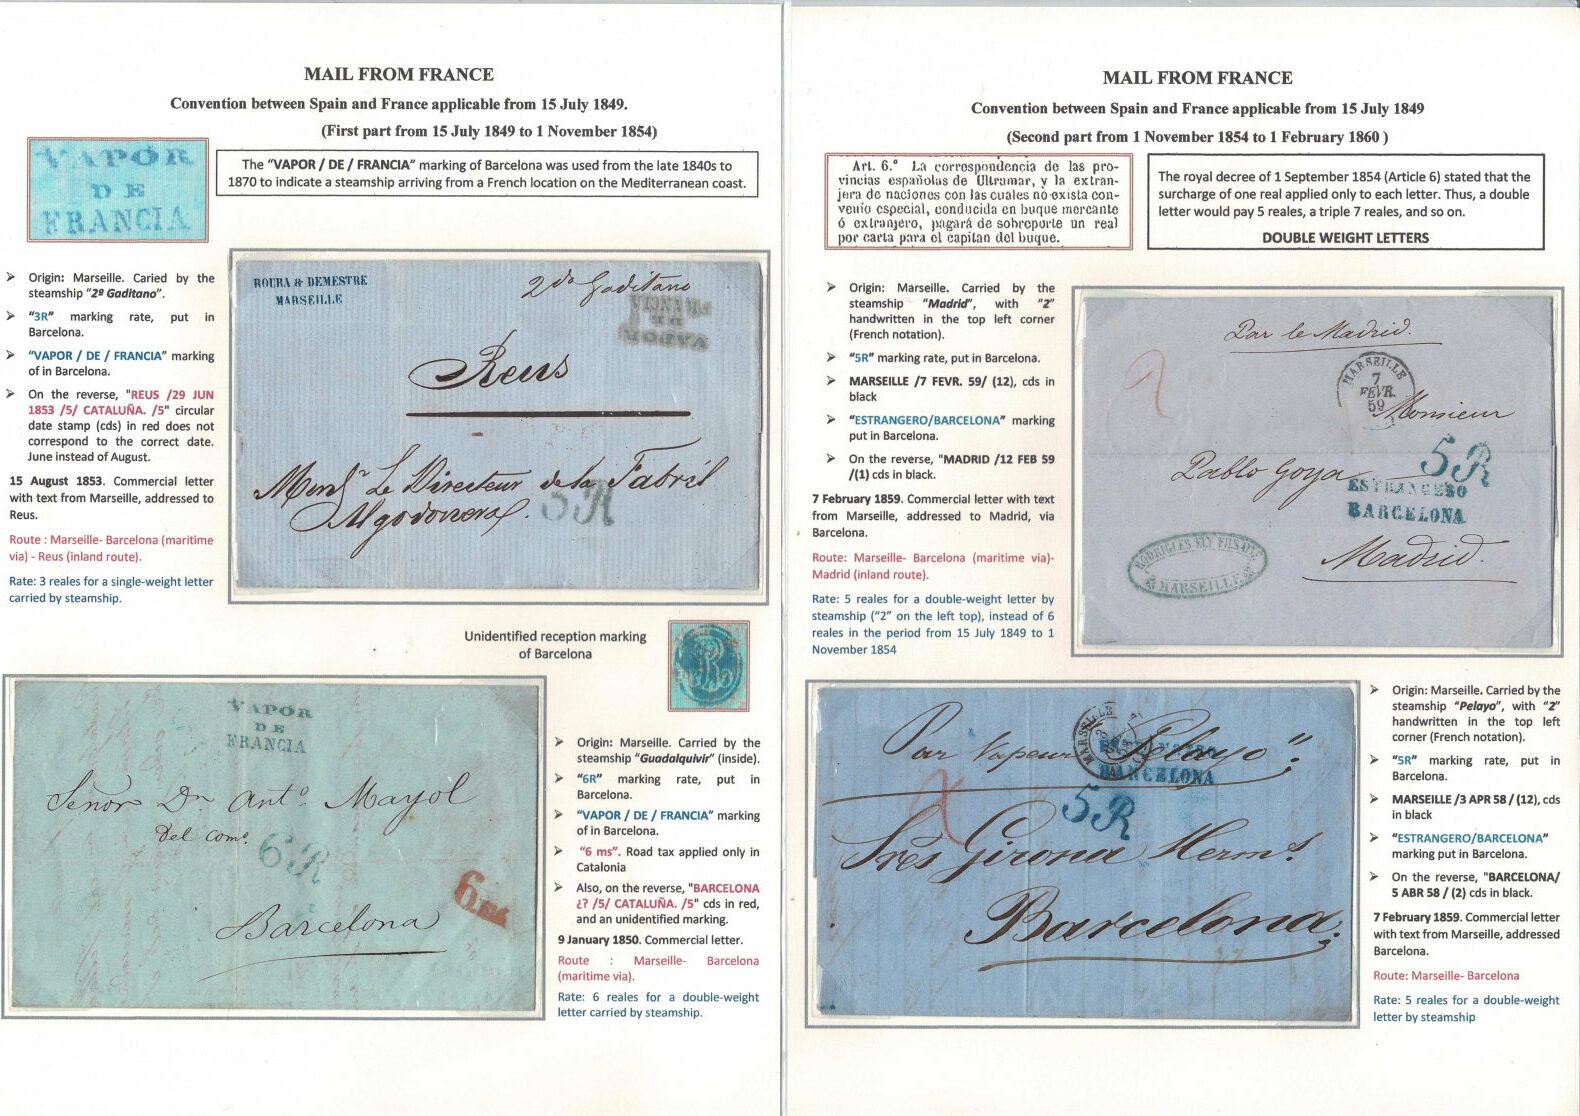 MAIL FROM FRANCE
Convention between Spain and France applicable from 15 July 1849.
(First part from 15 July 1849 to 1 November 1854)
VAPOR
DE
FRANCIA
The “VAPOR / DE / FRANCIA” marking of Barcelona was used from the late 1840s to
1870 to indicate a steamship arriving from a French location on the Mediterranean coast.
Origin: Marseille. Caried by the
steamship “2º Gaditano”.
“3R” marking rate, put in
Barcelona.
“VAPOR / DE / FRANCIA” marking
of in Barcelona.
On the reverse, "REUS /29 JUN
1853 /5/ CATALUÑA. /5" circular
date stamp (cds) in red does not
correspond to the correct date.
June instead of August.
15 August 1853. Commercial letter
with text from Marseille, addressed to
Reus.
Route : Marseille- Barcelona (maritime
via) - Reus (inland route).
Rate: 3 reales for a single-weight letter
carried by steamship.
ROURA & DEMESTRE
MARSEILLE
2do Gaditano
VAPOR
DE
FRANCIA
Reus
Monsr Le Directeur de la Fabril
Algodonera.
3R
Unidentified reception marking
of Barcelona
B
VAPOR
DE
FRANCIA
Señor Dn Anto. Mayol
del como.
6R
6 ms
Barcelona
Origin: Marseille. Carried by the
steamship “Guadalquivir” (inside).
“6R” marking rate, put in
Barcelona.
“VAPOR / DE / FRANCIA” marking
of in Barcelona.
“6 ms”. Road tax applied only in
Catalonia
Also, on the reverse, "BARCELONA
¿? /5/ CATALUÑA. /5" cds in red,
and an unidentified marking.
9 January 1850. Commercial letter.
Route : Marseille- Barcelona
(maritime via).
Rate: 6 reales for a double-weight
letter carried by steamship.
MAIL FROM FRANCE
Convention between Spain and France applicable from 15 July 1849
(Second part from 1 November 1854 to 1 February 1860 )
Art. 6.º La correspondencia de las pro-
vincias españolas de Ultramar, y la extran-
jera de naciones con las cuales no exista con-
venio especial, conducida en buque mercante
ó extranjero, pagará de sobreporte un real
por carta para el capitan del buque.
The royal decree of 1 September 1854 (Article 6) stated that the
surcharge of one real applied only to each letter. Thus, a double
letter would pay 5 reales, a triple 7 reales, and so on.
DOUBLE WEIGHT LETTERS
Origin: Marseille. Carried by the
steamship “Madrid”, with “2”
handwritten in the top left corner
(French notation).
“5R” marking rate, put in Barcelona.
MARSEILLE /7 FEVR. 59/ (12), cds in
black
“ESTRANGERO/BARCELONA” marking
put in Barcelona.
On the reverse, "MADRID /12 FEB 59
/(1) cds in black.
7 February 1859. Commercial letter with text
from Marseille, addressed to Madrid, via
Barcelona.
Route: Marseille- Barcelona (maritime via)-
Madrid (inland route).
Rate: 5 reales for a double-weight letter by
steamship (“2” on the left top), instead of 6
reales in the period from 15 July 1849 to 1
November 1854
Par le Madrid.
2
MARSEILLE
7
FEVR.
59
Monsieur
5R
Pablo Goya
ESTRANGERO
BARCELONA
MARSEILLE
Madrid.
MARSEILLE
3
Par Vapeur Pelayo
ESTRANGERO
BARCELONA
2
5R
Sres Girona Herms.
Barcelona.
Origin: Marseille. Carried by the
steamship “Pelayo”, with “2”
handwritten in the top left
corner (French notation).
“5R” marking rate, put in
Barcelona.
MARSEILLE /3 APR 58 / (12), cds
in black
“ESTRANGERO/BARCELONA”
marking put in Barcelona.
On the reverse, "BARCELONA/
5 ABR 58 / (2) cds in black.
7 February 1859. Commercial letter
with text from Marseille, addressed
Barcelona.
Route: Marseille- Barcelona
Rate: 5 reales for a double-weight
letter by steamship